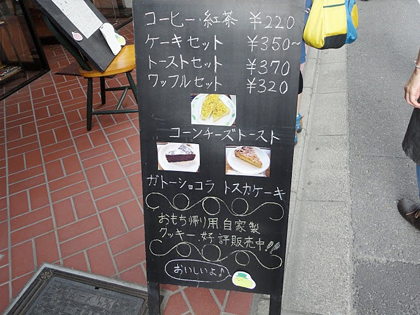 コーヒー・紅茶 ¥220
ケーキセット ¥350~
トーストセット ¥370
ワッフルセット ¥320
コーンチーズトースト
ガトーショコラ トスカケーキ
おもち帰り用 自家製
クッキー 好評販売中!!
おいしいよ♪